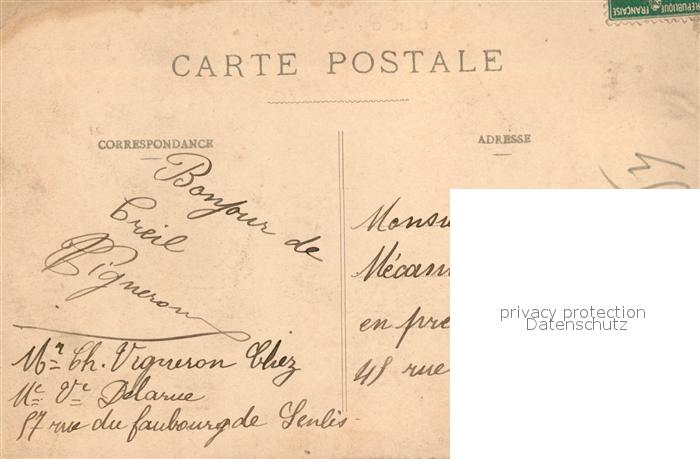 REPUBLIQUE FRANÇAISE
CARTE POSTALE
CORRESPONDANCE
Bonjour de
Creil
Vigneron
Mr Ch. Vigneron Chez
Me Ve Delarue
57 rue du faubourg de Senlis
ADRESSE
Monsi
Mécani
en pre
45 rue
privacy protection
Datenschutz